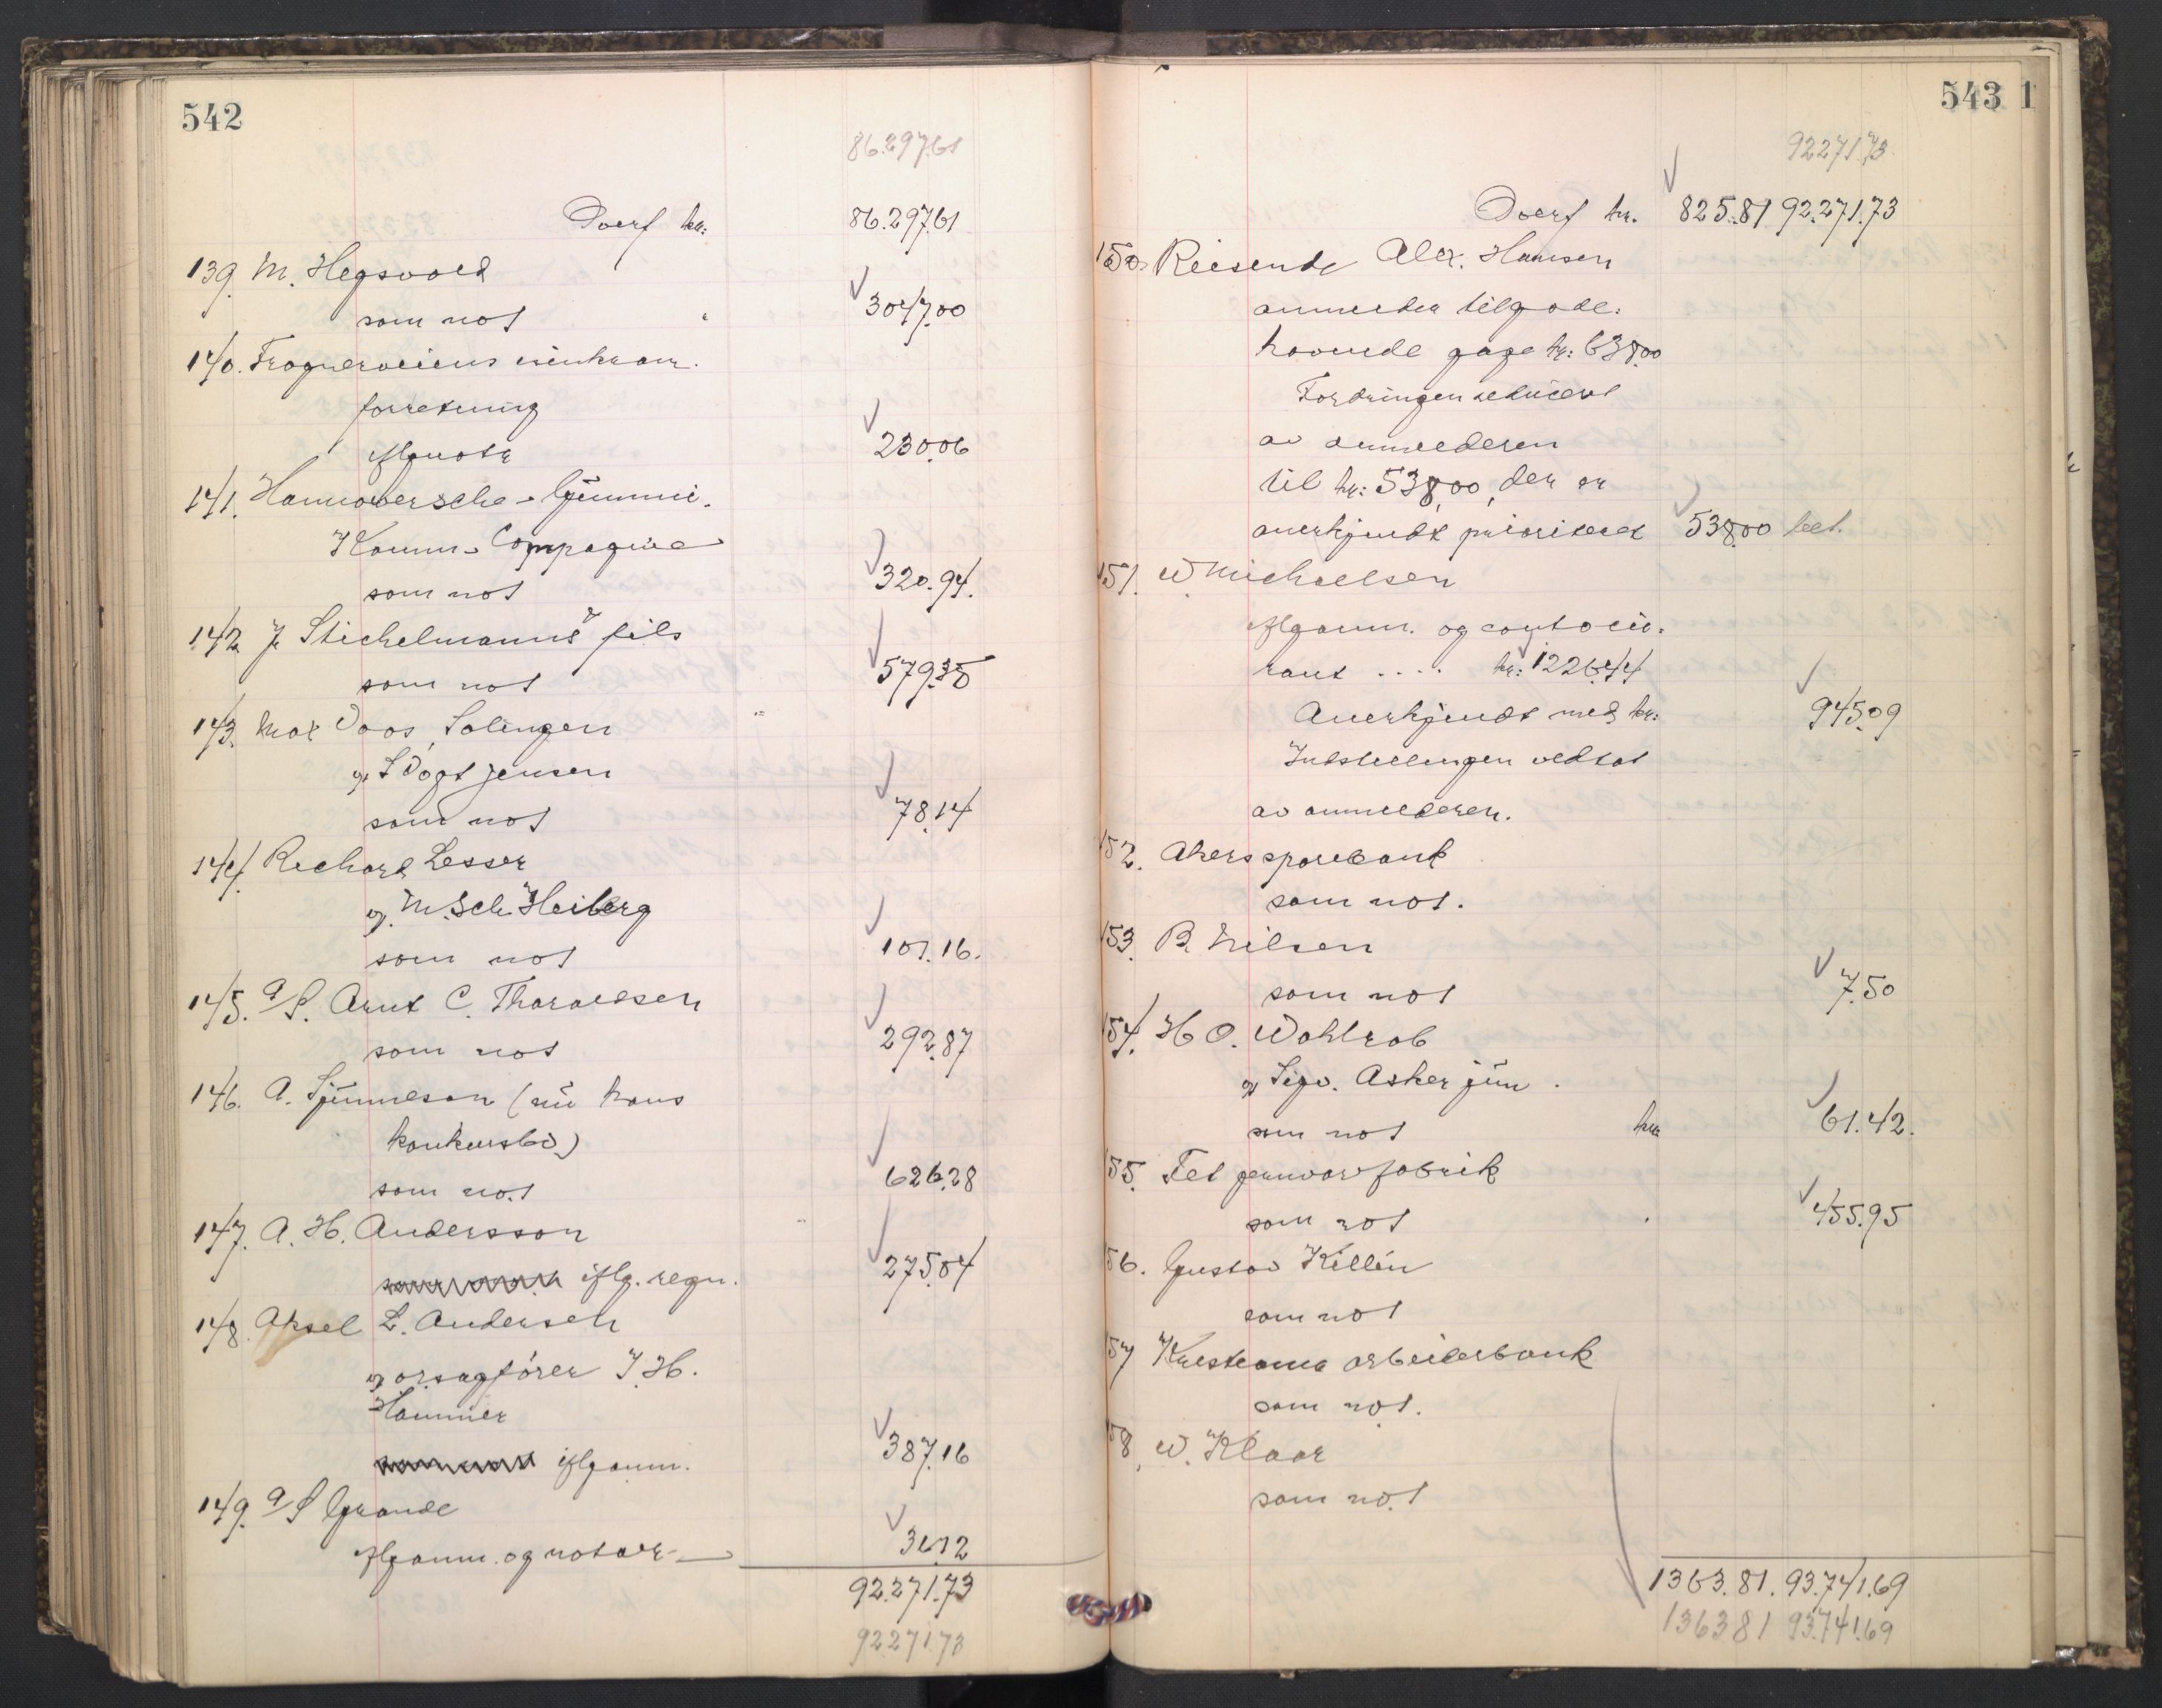 542
86.297.61
Overf kr: 86.297.61
139. M. Hegsvold
som not 3047.00
140. Frognerveiens isenkram.
forretning
iflg nota 230.06
141. Hannoversche - Gummi.
Kamm - Compagnie
som not 320.94.
142. J. Stichelmanns fils
som not 579.35
143. Max Voos, Solingen
v/ L Vogt Jensen
som not 78.14
144. Richard Lesser
v/ M. Sch. Heiberg
som not 101.16.
145. A/S. Arnt C. Thoraldsen
som not 292.87
146. A. Sjunneson (nu hans
konkursbo)
som not 626.28
147. A. H. Andersson
iflg. regn. 275.04
148. Aksel L. Andersen
v/ orsagfører J. H.
Hammer
iflg anm. 387.16
149. A/S Grande
iflg anm. og notaer 36.12
92.271.73
92271.73
543 1
92271.73
Overf kr. 825.81 92.271.73
150. Reisende Alex. Hansen
anmelder tilgode.
havende gage kr: 638.00
Fordringen reduceret
av anmelderen
til kr: 538,00, der er
anerkjendt prioriteret 538.00 bet.
151. W. Michaelsen
iflg anm. og contocu.
rant .... kr: 1226.44
Anerkjendt med kr: 945.09
Indstillingen vedtat
av anmelderen.
152. Akers sparebank
som not.
153. B. Nilsen
som not 7.50
154. H O. Wohlrab
v/ Sigv. Asker jun.
som not kr. 61.42.
155. Fet jernvarefabrik
som not 455.95
156. Gustav Killin
som not
157 Kristiania arbeiderbank
som not.
158, W. Klaar
som not
1363.81. 93.741.69
1363 81 93.741.69